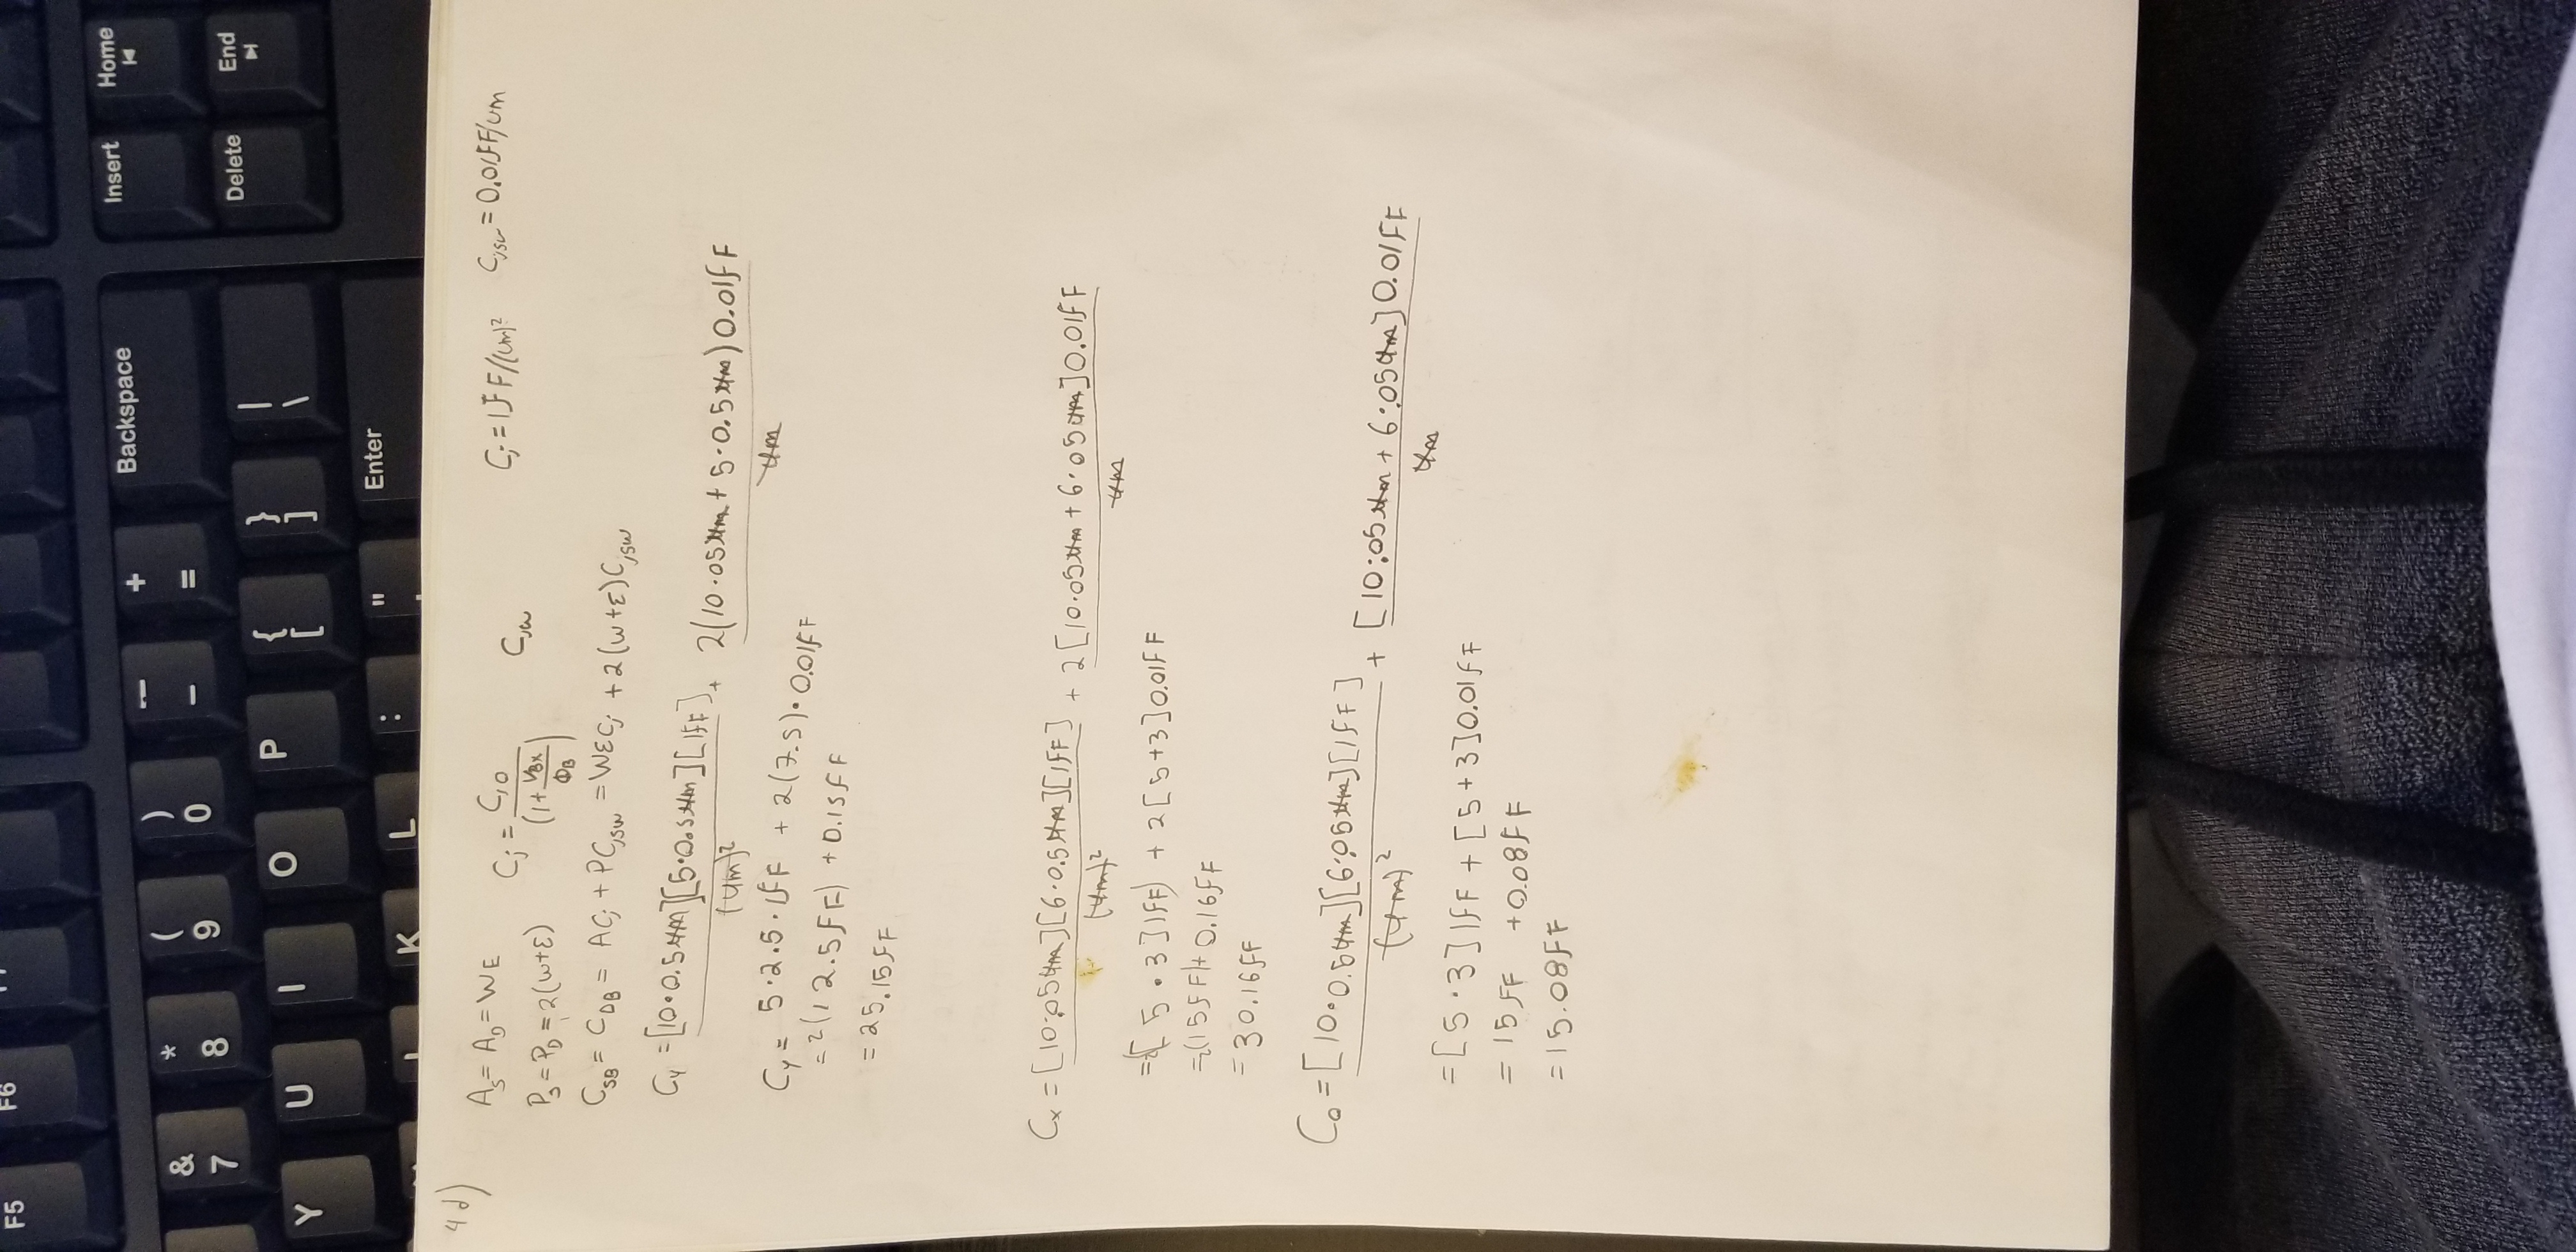 F5 F6
& 7 * 8 ( 9 ) 0 — - + = Backspace Insert Home
Y U I O P { [ } ] | \ Delete End
K L : " Enter
4d)
A_S = A_D = WE
C_j = C_j0 / (1 + V_BX/Φ_B)
C_jSW
C_j = 1fF/(um)² C_jsw = 0.01fF/um
P_S = P_D = 2(W+E)
C_SB = C_DB = AC_j + PC_jSW = WEC_j + 2(W+E)C_jSW
C_Y = [10·0.5um][5·0.5um][1fF] / (um)² + 2(10·05um + 5·0.5um)0.01fF / um
C_Y = 5·2.5·1fF + 2(7.5)·0.01fF
= 2(12.5fF) + 0.15fF
= 25.15fF
C_x = [10·.05um][6·0.5um][1fF] / (um)² + 2[10·05um + 6·05um]0.01fF / um
= 2([5·3]1fF) + 2[5+3]0.01fF
= 2(15fF) + 0.16fF
= 30.16fF
C_o = [10·0.5um][6·05um][1fF] / (um)² + [10·.05um + 6·.05um]0.01fF / um
= [5·3]1fF + [5+3]0.01fF
= 15fF + 0.08fF
= 15.08fF